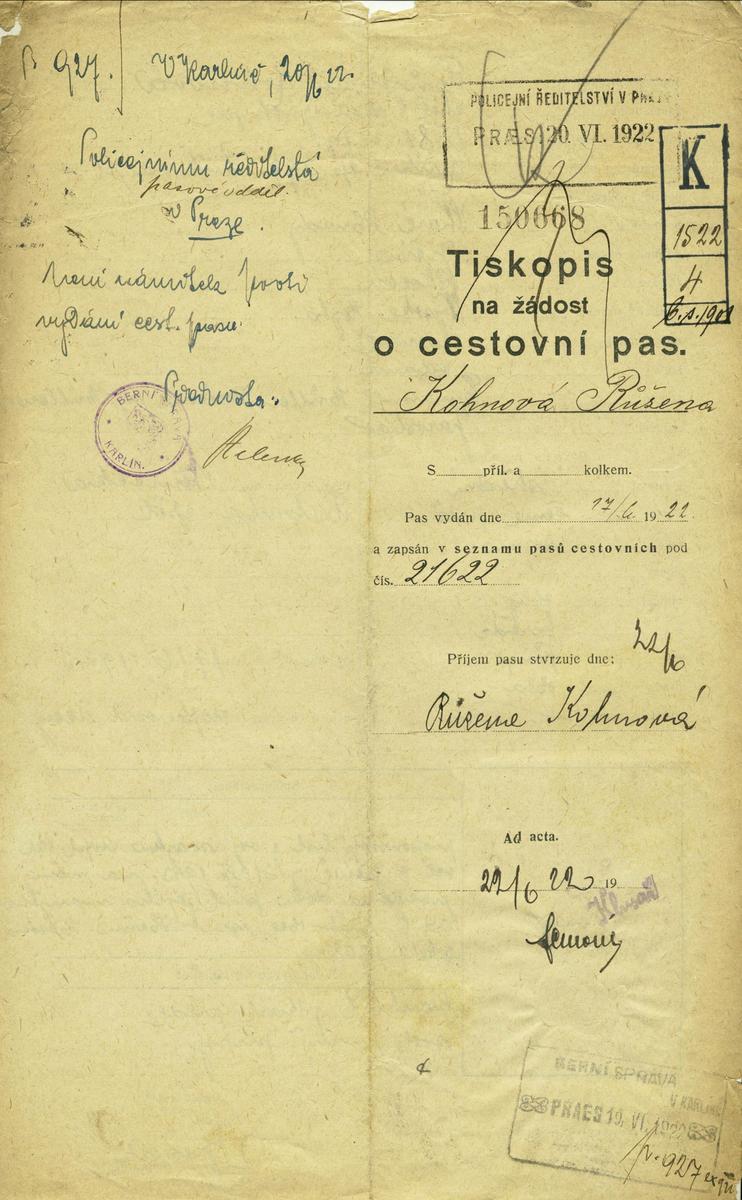 927.
V Karlíně, 20/6 22.
Policejnímu ředitelství
pasové odděl.
v Praze.
Není námitek proti
vydání cest. pasu.
Přednosta:
BERNÍ SPRÁVA
KARLÍN.
POLICEJNÍ ŘEDITELSTVÍ V PRAZE
PRÆS. 20. VI. 1922
150668
K
1522
4
Tiskopis
na žádost
o cestovní pas.
Kohnová Růžena
S příl. a kolkem.
Pas vydán dne 17/6. 1922.
a zapsán v seznamu pasů cestovních pod
čís. 21622
Příjem pasu stvrzuje dne: 22/6
Růžena Kohnová
Ad acta.
22/6 22 19
BERNÍ SPRÁVA
V KARLÍNĚ
PRAES 19. VI. 1922
927